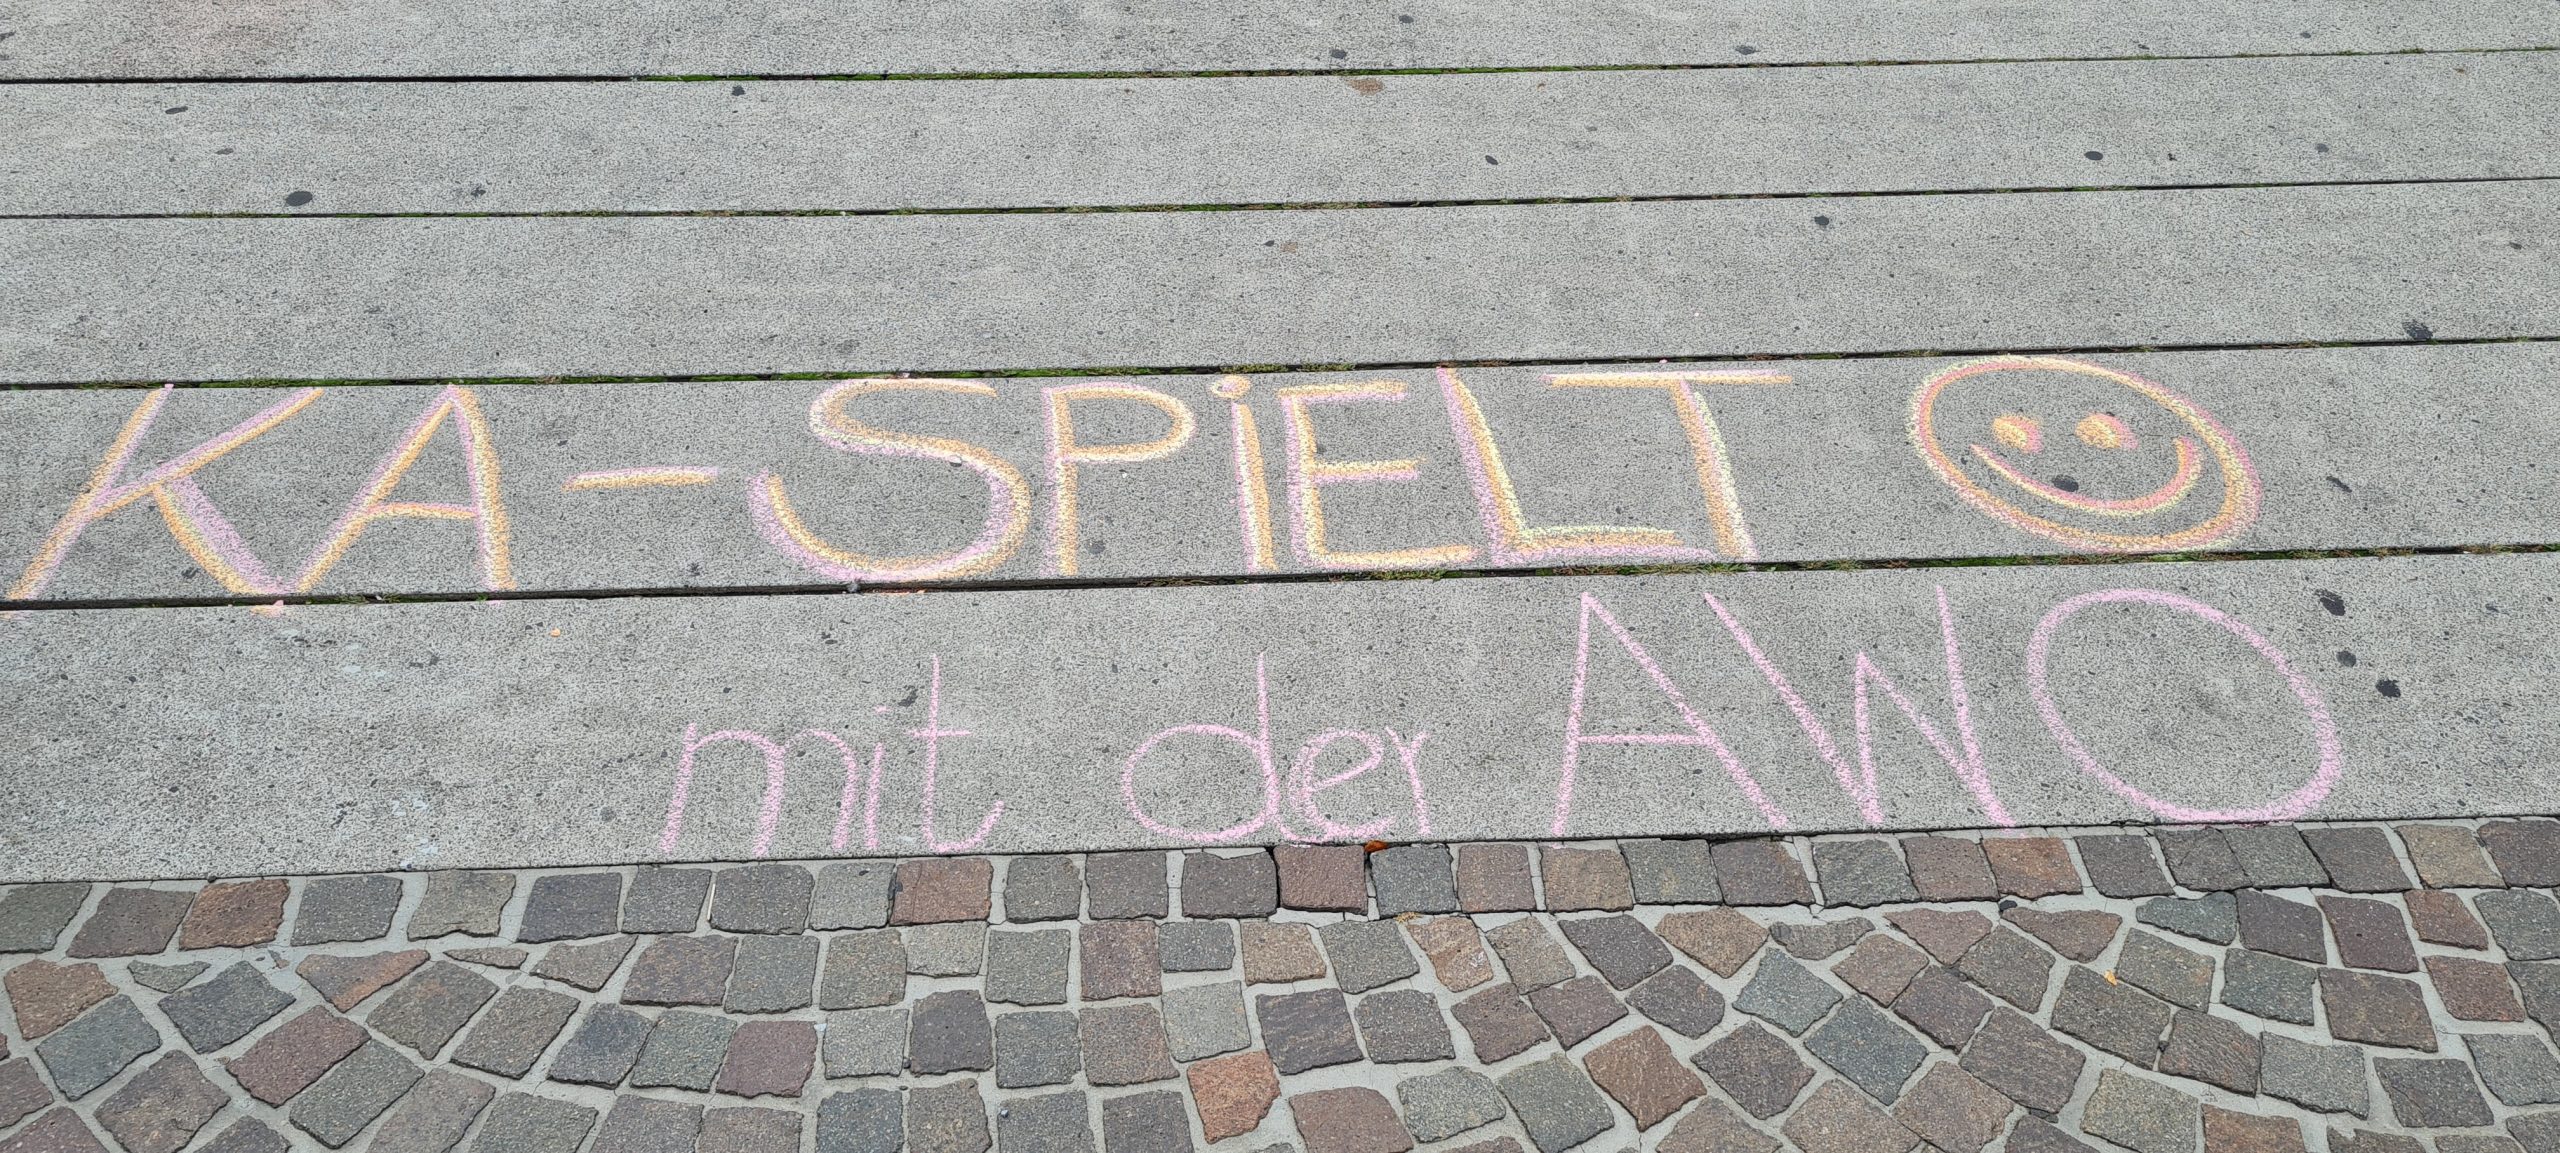 KA-SPiELT
mit der AWO